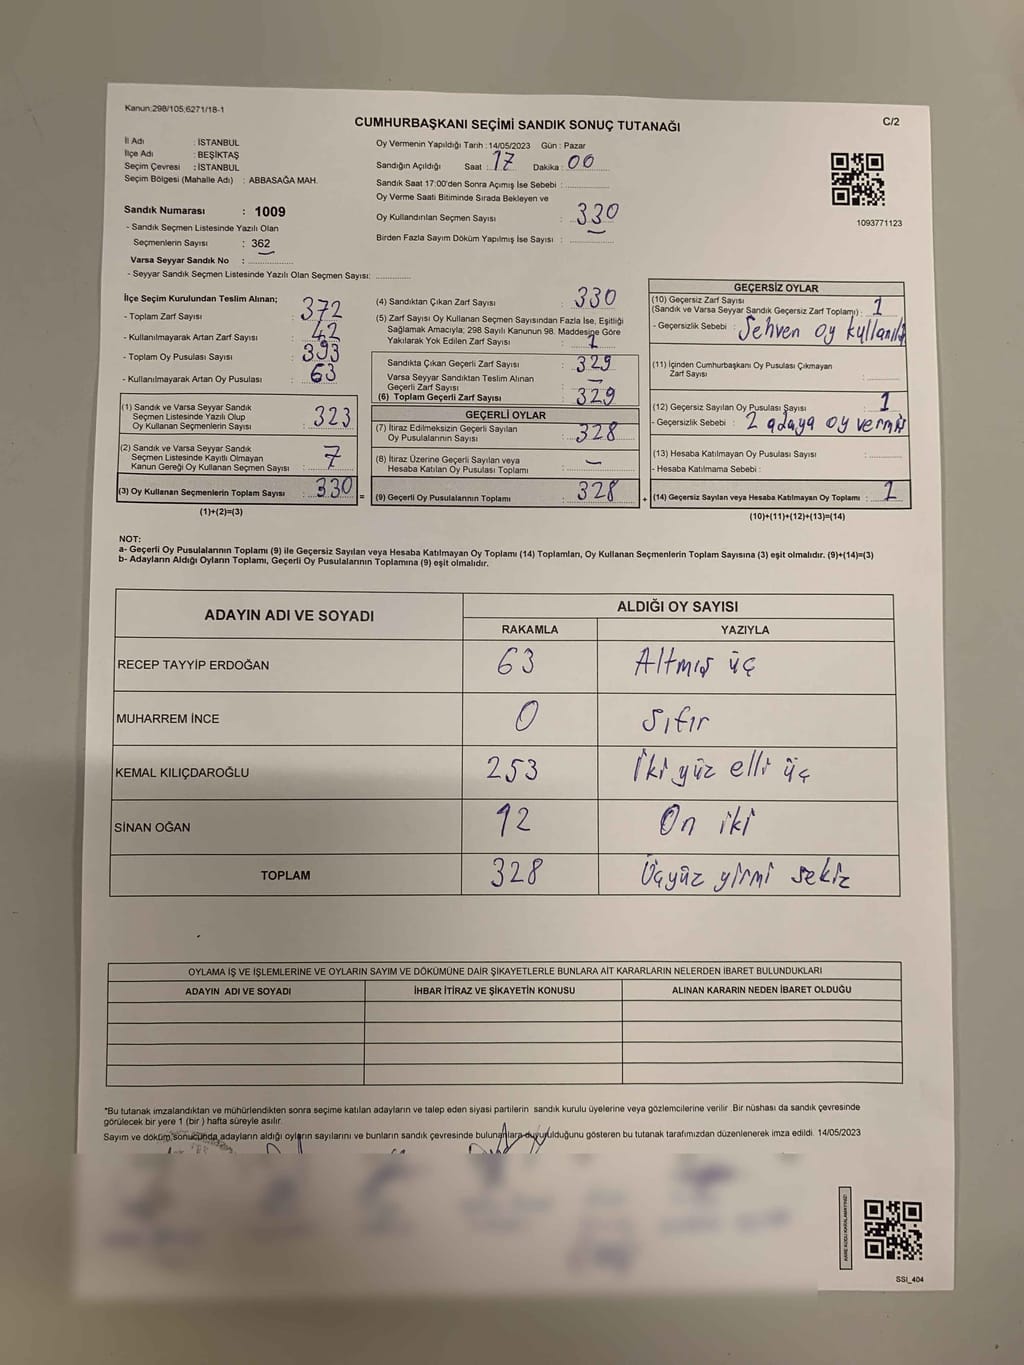 Kanun:298/105;6271/18-1
CUMHURBAŞKANI SEÇİMİ SANDIK SONUÇ TUTANAĞI
C/2
İl Adı : İSTANBUL
İlçe Adı : BEŞİKTAŞ
Seçim Çevresi : İSTANBUL
Seçim Bölgesi (Mahalle Adı) : ABBASAĞA MAH.
Sandık Numarası : 1009
- Sandık Seçmen Listesinde Yazılı Olan
Seçmenlerin Sayısı : 362
Varsa Seyyar Sandık No :
- Seyyar Sandık Seçmen Listesinde Yazılı Olan Seçmen Sayısı:
Oy Vermenin Yapıldığı Tarih : 14/05/2023 Gün : Pazar
Sandığın Açıldığı Saat : 17 Dakika : 00
Sandık Saat 17:00'den Sonra Açımış İse Sebebi :
Oy Verme Saati Bitiminde Sırada Bekleyen ve
Oy Kullandırılan Seçmen Sayısı : 330
Birden Fazla Sayım Döküm Yapılmış İse Sayısı :
1093771123
İlçe Seçim Kurulundan Teslim Alınan;
- Toplam Zarf Sayısı : 372
- Kullanılmayarak Artan Zarf Sayısı : 42
- Toplam Oy Pusulası Sayısı : 393
- Kullanılmayarak Artan Oy Pusulası : 63
(1) Sandık ve Varsa Seyyar Sandık
Seçmen Listesinde Yazılı Olup
Oy Kullanan Seçmenlerin Sayısı : 323
(2) Sandık ve Varsa Seyyar Sandık
Seçmen Listesinde Kayıtlı Olmayan
Kanun Gereği Oy Kullanan Seçmen Sayısı : 7
(3) Oy Kullanan Seçmenlerin Toplam Sayısı : 330 =
(1)+(2)=(3)
(4) Sandıktan Çıkan Zarf Sayısı : 330
(5) Zarf Sayısı Oy Kullanan Seçmen Sayısından Fazla İse, Eşitliği
Sağlamak Amacıyla; 298 Sayılı Kanunun 98. Maddesine Göre
Yakılarak Yok Edilen Zarf Sayısı : 1
Sandıkta Çıkan Geçerli Zarf Sayısı : 329
Varsa Seyyar Sandıktan Teslim Alınan
Geçerli Zarf Sayısı : —
(6) Toplam Geçerli Zarf Sayısı : 329
GEÇERLİ OYLAR
(7) İtiraz Edilmeksizin Geçerli Sayılan
Oy Pusulalarının Sayısı : 328
(8) İtiraz Üzerine Geçerli Sayılan veya
Hesaba Katılan Oy Pusulası Toplamı : —
(9) Geçerli Oy Pusulalarının Toplamı : 328 +
GEÇERSİZ OYLAR
(10) Geçersiz Zarf Sayısı
(Sandık ve Varsa Seyyar Sandık Geçersiz Zarf Toplamı) : 1
- Geçersizlik Sebebi : Sehven oy kullanıld
(11) İçinden Cumhurbaşkanı Oy Pusulası Çıkmayan
Zarf Sayısı :
(12) Geçersiz Sayılan Oy Pusulası Sayısı : 1
- Geçersizlik Sebebi : 2 adaya oy vermiş
(13) Hesaba Katılmayan Oy Pusulası Sayısı :
- Hesaba Katılmama Sebebi :
(14) Geçersiz Sayılan veya Hesaba Katılmayan Oy Toplamı : 1
(10)+(11)+(12)+(13)=(14)
NOT:
a- Geçerli Oy Pusulalarının Toplamı (9) ile Geçersiz Sayılan veya Hesaba Katılmayan Oy Toplamı (14) Toplamları, Oy Kullanan Seçmenlerin Toplam Sayısına (3) eşit olmalıdır. (9)+(14)=(3)
b- Adayların Aldığı Oyların Toplamı, Geçerli Oy Pusulalarının Toplamına (9) eşit olmalıdır.
ADAYIN ADI VE SOYADI
ALDIĞI OY SAYISI
RAKAMLA YAZIYLA
RECEP TAYYİP ERDOĞAN 63 Altmış üç
MUHARREM İNCE 0 Sıfır
KEMAL KILIÇDAROĞLU 253 İki yüz elli üç
SİNAN OĞAN 12 On iki
TOPLAM 328 Üçyüz yirmi sekiz
OYLAMA İŞ VE İŞLEMLERİNE VE OYLARIN SAYIM VE DÖKÜMÜNE DAİR ŞİKAYETLERLE BUNLARA AİT KARARLARIN NELERDEN İBARET BULUNDUKLARI
ADAYIN ADI VE SOYADI İHBAR İTİRAZ VE ŞİKAYETİN KONUSU ALINAN KARARIN NEDEN İBARET OLDUĞU
*Bu tutanak imzalandıktan ve mühürlendikten sonra seçime katılan adayların ve talep eden siyasi partilerin sandık kurulu üyelerine veya gözlemcilerine verilir. Bir nüshası da sandık çevresinde
görülecek bir yere 1 (bir ) hafta süreyle asılır.
Sayım ve döküm sonucunda adayların aldığı oyların sayılarını ve bunların sandık çevresinde bulunanlara duyurulduğunu gösteren bu tutanak tarafımızdan düzenlenerek imza edildi. 14/05/2023
SSİ_404